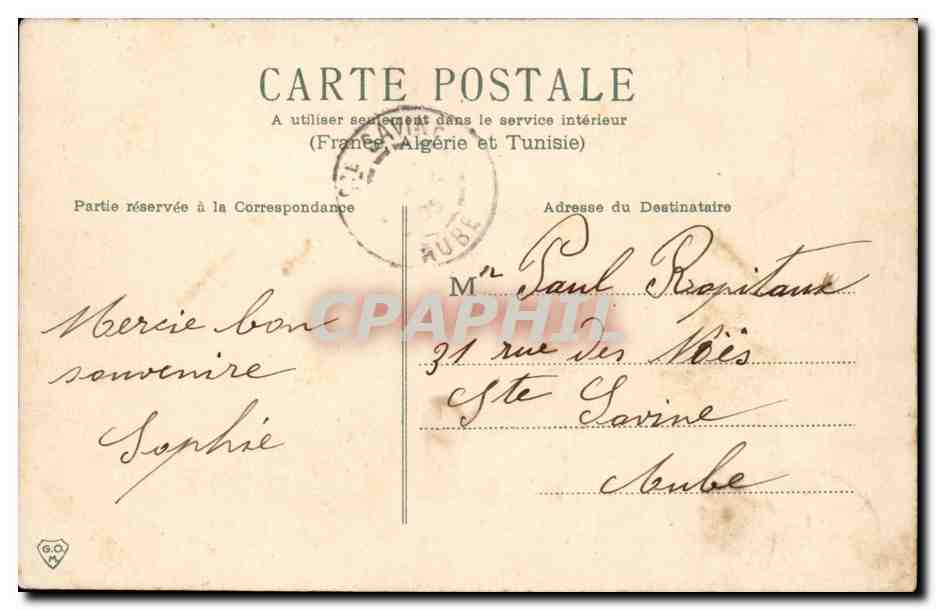 CARTE POSTALE
A utiliser seulement dans le service intérieur
(France, Algérie et Tunisie)
STE SAVINE
05
AUBE
Partie réservée à la Correspondance
Adresse du Destinataire
Mercie bon
souvenire
Sophie
Mr Paul
31 rue des Noës
Ste Savine
Aube
CPAPHIL
G.O.
M